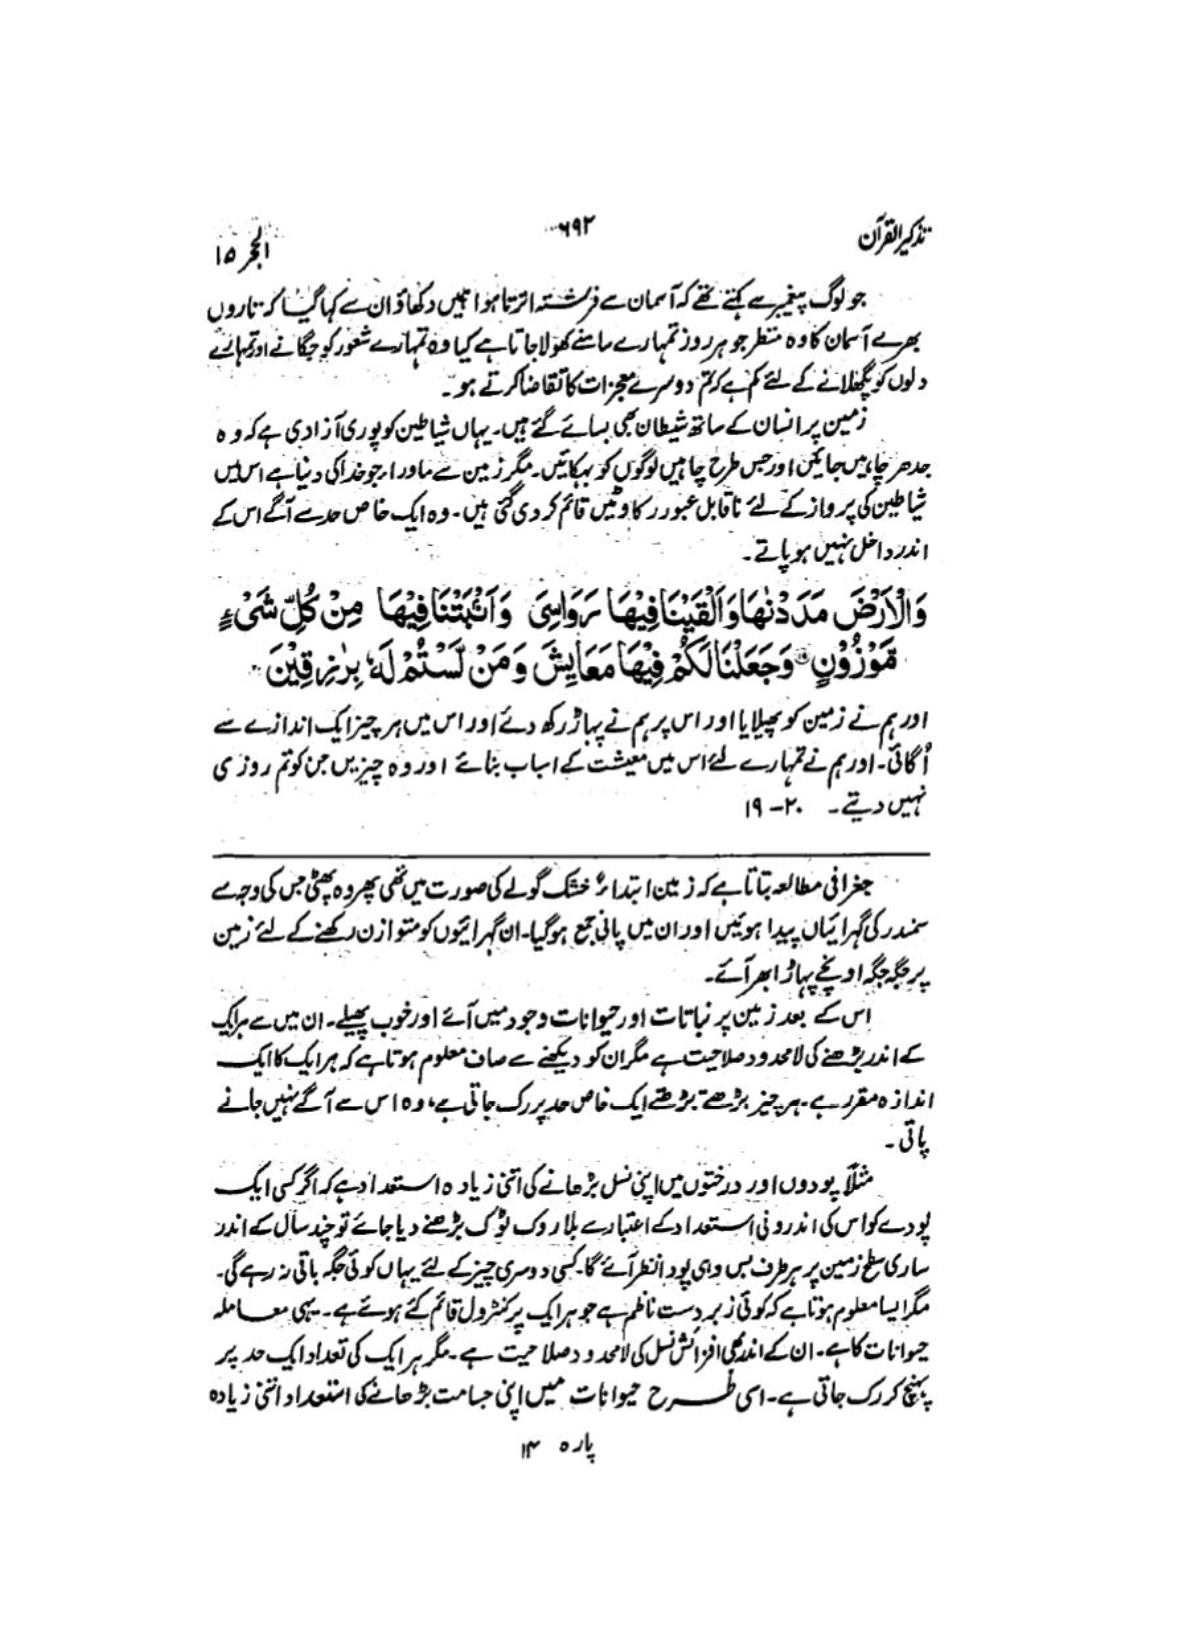 تذکیر القرآن
۶۹۲
الحجر ۱۵
جو لوگ پیغمبر سے کہتے تھے کہ آسمان سے فرشتہ اترتا ہوا ہمیں دکھاؤ ان سے کہا گیا کہ تاروں
بھرے آسمان کا وہ منظر جو ہر روز تمہارے سامنے کھولا جاتا ہے کیا وہ تمہارے شعور کو جگانے اور تمہارے
دلوں کو پگھلانے کے لئے کم ہے کہ تم دوسرے معجزات کا تقاضا کرتے ہو۔
زمین پر انسان کے ساتھ شیطان بھی بسائے گئے ہیں۔ یہاں شیاطین کو پوری آزادی ہے کہ وہ
جدھر چاہیں جائیں اور جس طرح چاہیں لوگوں کو بہکائیں۔ مگر زمین سے ماوراء جو خدا کی دنیا ہے اس میں
شیاطین کی پرواز کے لئے ناقابل عبور رکاوٹیں قائم کر دی گئی ہیں۔ وہ ایک خاص حد سے آگے اس کے
اندر داخل نہیں ہو پاتے۔
وَالْاَرْضَ مَدَدْنٰهَا وَاَلْقَيْنَا فِيْهَا رَوَاسِيَ وَاَنْۢبَتْنَا فِيْهَا مِنْ كُلِّ شَيْءٍ
مَّوْزُوْنٍ ۞ وَجَعَلْنَا لَكُمْ فِيْهَا مَعَايِشَ وَمَنْ لَّسْتُمْ لَهٗ بِرٰزِقِيْنَ
اور ہم نے زمین کو پھیلایا اور اس پر ہم نے پہاڑ رکھ دئے اور اس میں ہر چیز ایک اندازے سے
اُگائی۔ اور ہم نے تمہارے لئے اس میں معیشت کے اسباب بنائے اور وہ چیزیں جن کو تم روزی
نہیں دیتے۔ ۲۰-۱۹
جغرافی مطالعہ بتاتا ہے کہ زمین ابتداءً خشک گولے کی صورت میں تھی پھر وہ پھٹی جس کی وجہ سے
سمندر کی گہرائیاں پیدا ہوئیں اور ان میں پانی جمع ہوگیا۔ ان گہرائیوں کو متوازن رکھنے کے لئے زمین
پر جگہ جگہ اونچے پہاڑ ابھر آئے۔
اس کے بعد زمین پر نباتات اور حیوانات وجود میں آئے اور خوب پھیلے۔ ان میں سے ہر ایک
کے اندر بڑھنے کی لامحدود صلاحیت ہے مگر ان کو دیکھنے سے صاف معلوم ہوتا ہے کہ ہر ایک کا ایک
اندازہ مقرر ہے۔ ہر چیز بڑھتے بڑھتے ایک خاص حد پر رک جاتی ہے، وہ اس سے آگے نہیں جانے
پاتی۔
مثلاً پودوں اور درختوں میں اپنی نسل بڑھانے کی اتنی زیادہ استعداد ہے کہ اگر کسی ایک
پودے کو اس کی اندرونی استعداد کے اعتبار سے بلا روک ٹوک بڑھنے دیا جائے تو چند سال کے اندر
ساری سطح زمین پر ہر طرف بس وہی پودا نظر آئے گا۔ کسی دوسری چیز کے لئے یہاں کوئی جگہ باقی نہ رہے گی۔
مگر ایسا معلوم ہوتا ہے کہ کوئی زبردست ناظم ہے جو ہر ایک پر کنٹرول قائم کئے ہوئے ہے۔ یہی معاملہ
حیوانات کا ہے۔ ان کے اندر بھی افزائش نسل کی لامحدود صلاحیت ہے۔ مگر ہر ایک کی تعداد ایک حد پر
پہنچ کر رک جاتی ہے۔ اسی طرح حیوانات میں اپنی جسامت بڑھانے کی استعداد اتنی زیادہ
پارہ ۱۴